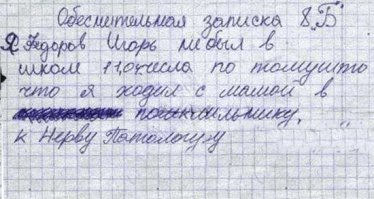 Обеснительная записка 8 „Б"
Я Федоров Игорь не был в
школ 11,04 числа по томушто
что я ходил с мамой в
к Нерву Потологу